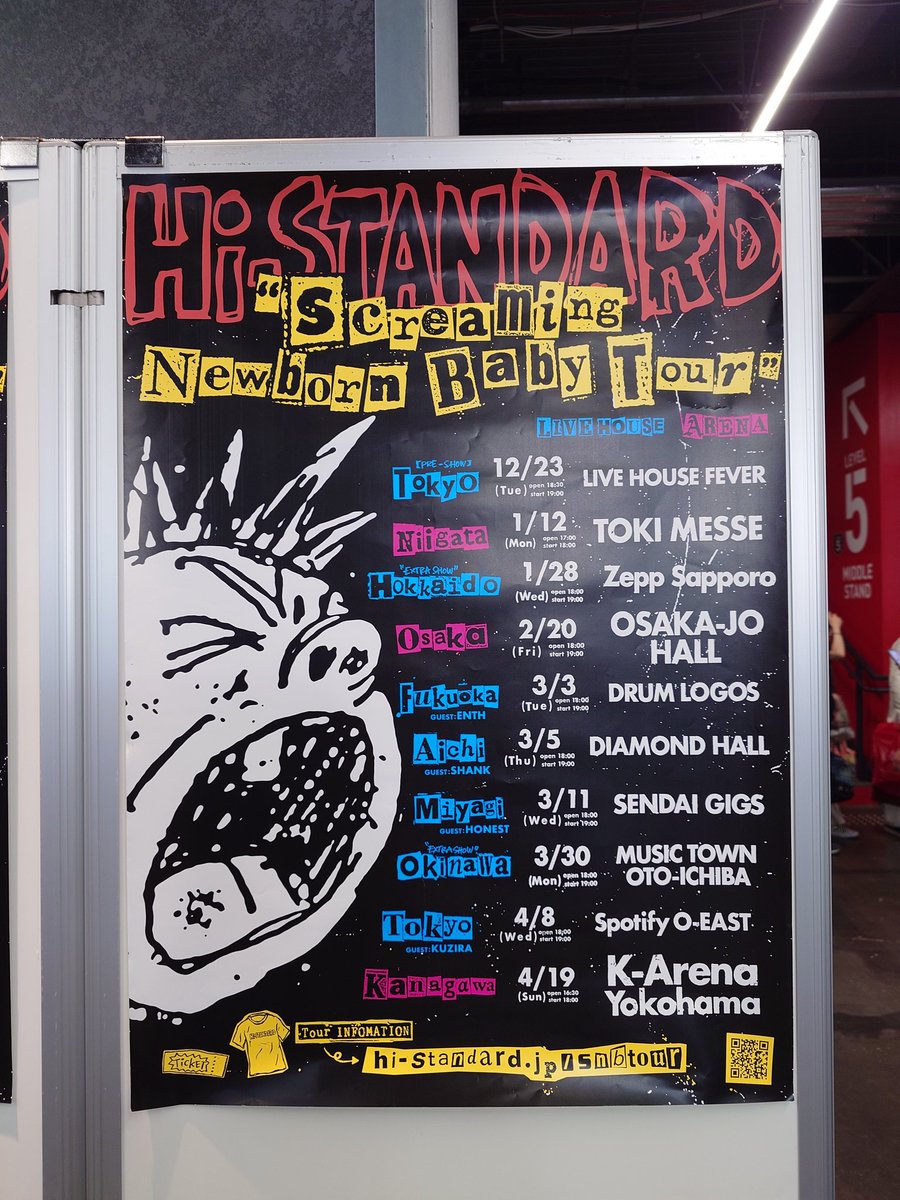 Hi-STANDARD
"Screaming
Newborn Baby Tour"
LIVE HOUSE ARENA
[PRE-SHOW]
Tokyo 12/23 (Tue) open 18:30 start 19:00 LIVE HOUSE FEVER
Niigata 1/12 (Mon) open 17:00 start 18:00 TOKI MESSE
"EXTRA SHOW"
Hokkaido 1/28 (Wed) open 18:00 start 19:00 Zepp Sapporo
Osaka 2/20 (Fri) open 18:00 start 19:00 OSAKA-JO HALL
Fukuoka 3/3 (Tue) open 18:00 start 19:00 DRUM LOGOS
GUEST:ENTH
Aichi 3/5 (Thu) open 18:00 start 19:00 DIAMOND HALL
GUEST:SHANK
Miyagi 3/11 (Wed) open 18:00 start 19:00 SENDAI GIGS
GUEST:HONEST
"EXTRA SHOW"
Okinawa 3/30 (Mon) open 18:00 start 19:00 MUSIC TOWN OTO-ICHIBA
Tokyo 4/8 (Wed) open 18:00 start 19:00 Spotify O-EAST
GUEST:KUZIRA
Kanagawa 4/19 (Sun) open 16:30 start 18:00 K-Arena Yokohama
TICKET
Tour INFOMATION
hi-standard.jp/smbtour
LEVEL
5
MIDDLE
STAND